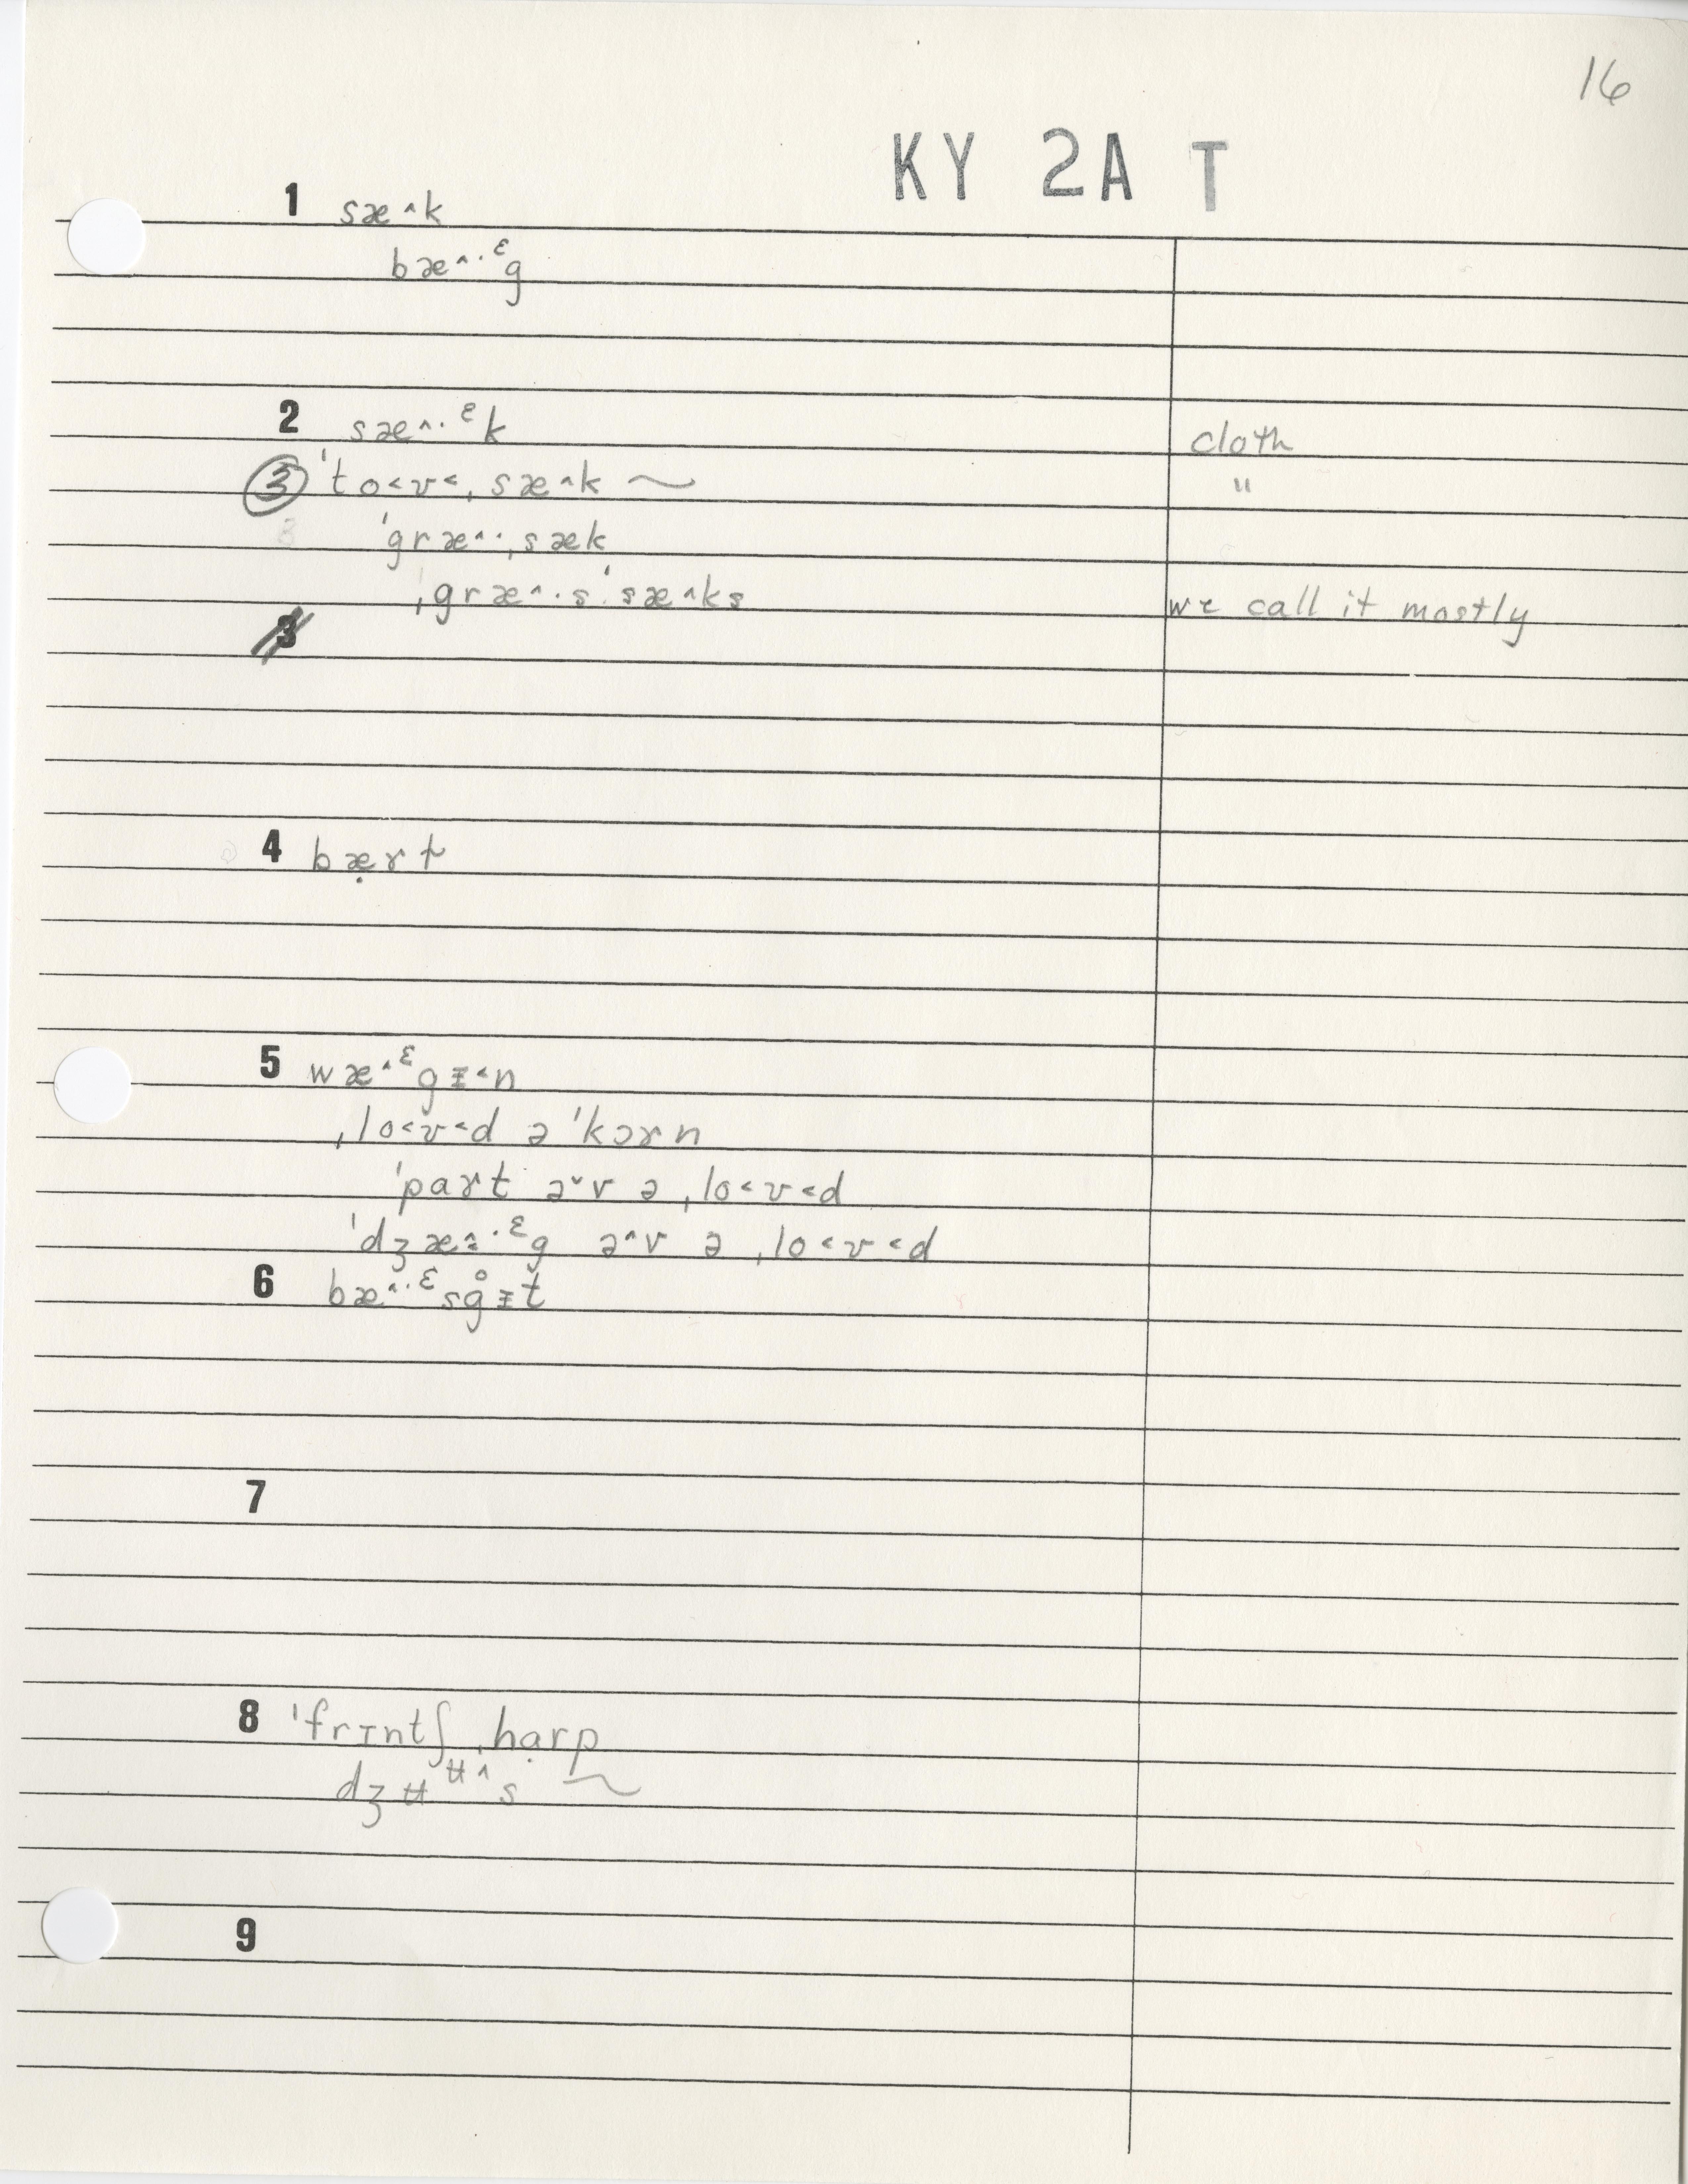 16
KY 2A T
1 sæ^k
bæ^·ᵋg
2 sæ^·ᵋk cloth
③ 'to<ʊ<ˌsæ^k ~ "
'græ^·ˌsæk
ˌgræ^·s'sæ^ks we call it mostly
3
4 bæ̣rt̬
5 wæ^ᵋgɨ<n
ˌlo<ʊ<d ə 'kɔɤn
'paɤt ə˅v ə ˌlo<ʊ<d
'dʒæ^·ᵋg ə^v ə ˌlo<ʊ<d
6 bæ^·ᵋsg̊ɨt̬
7
8 'frɪntʃˌhɑ̣rp
dʒʉᵾ^s ~
9